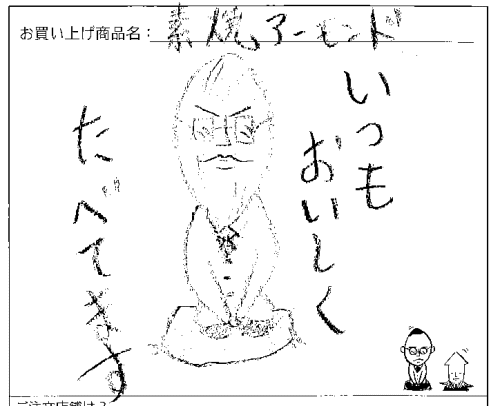 お買い上げ商品名：素焼アーモンド
いつも
おいしく
たべてます
ご注文店舗は？